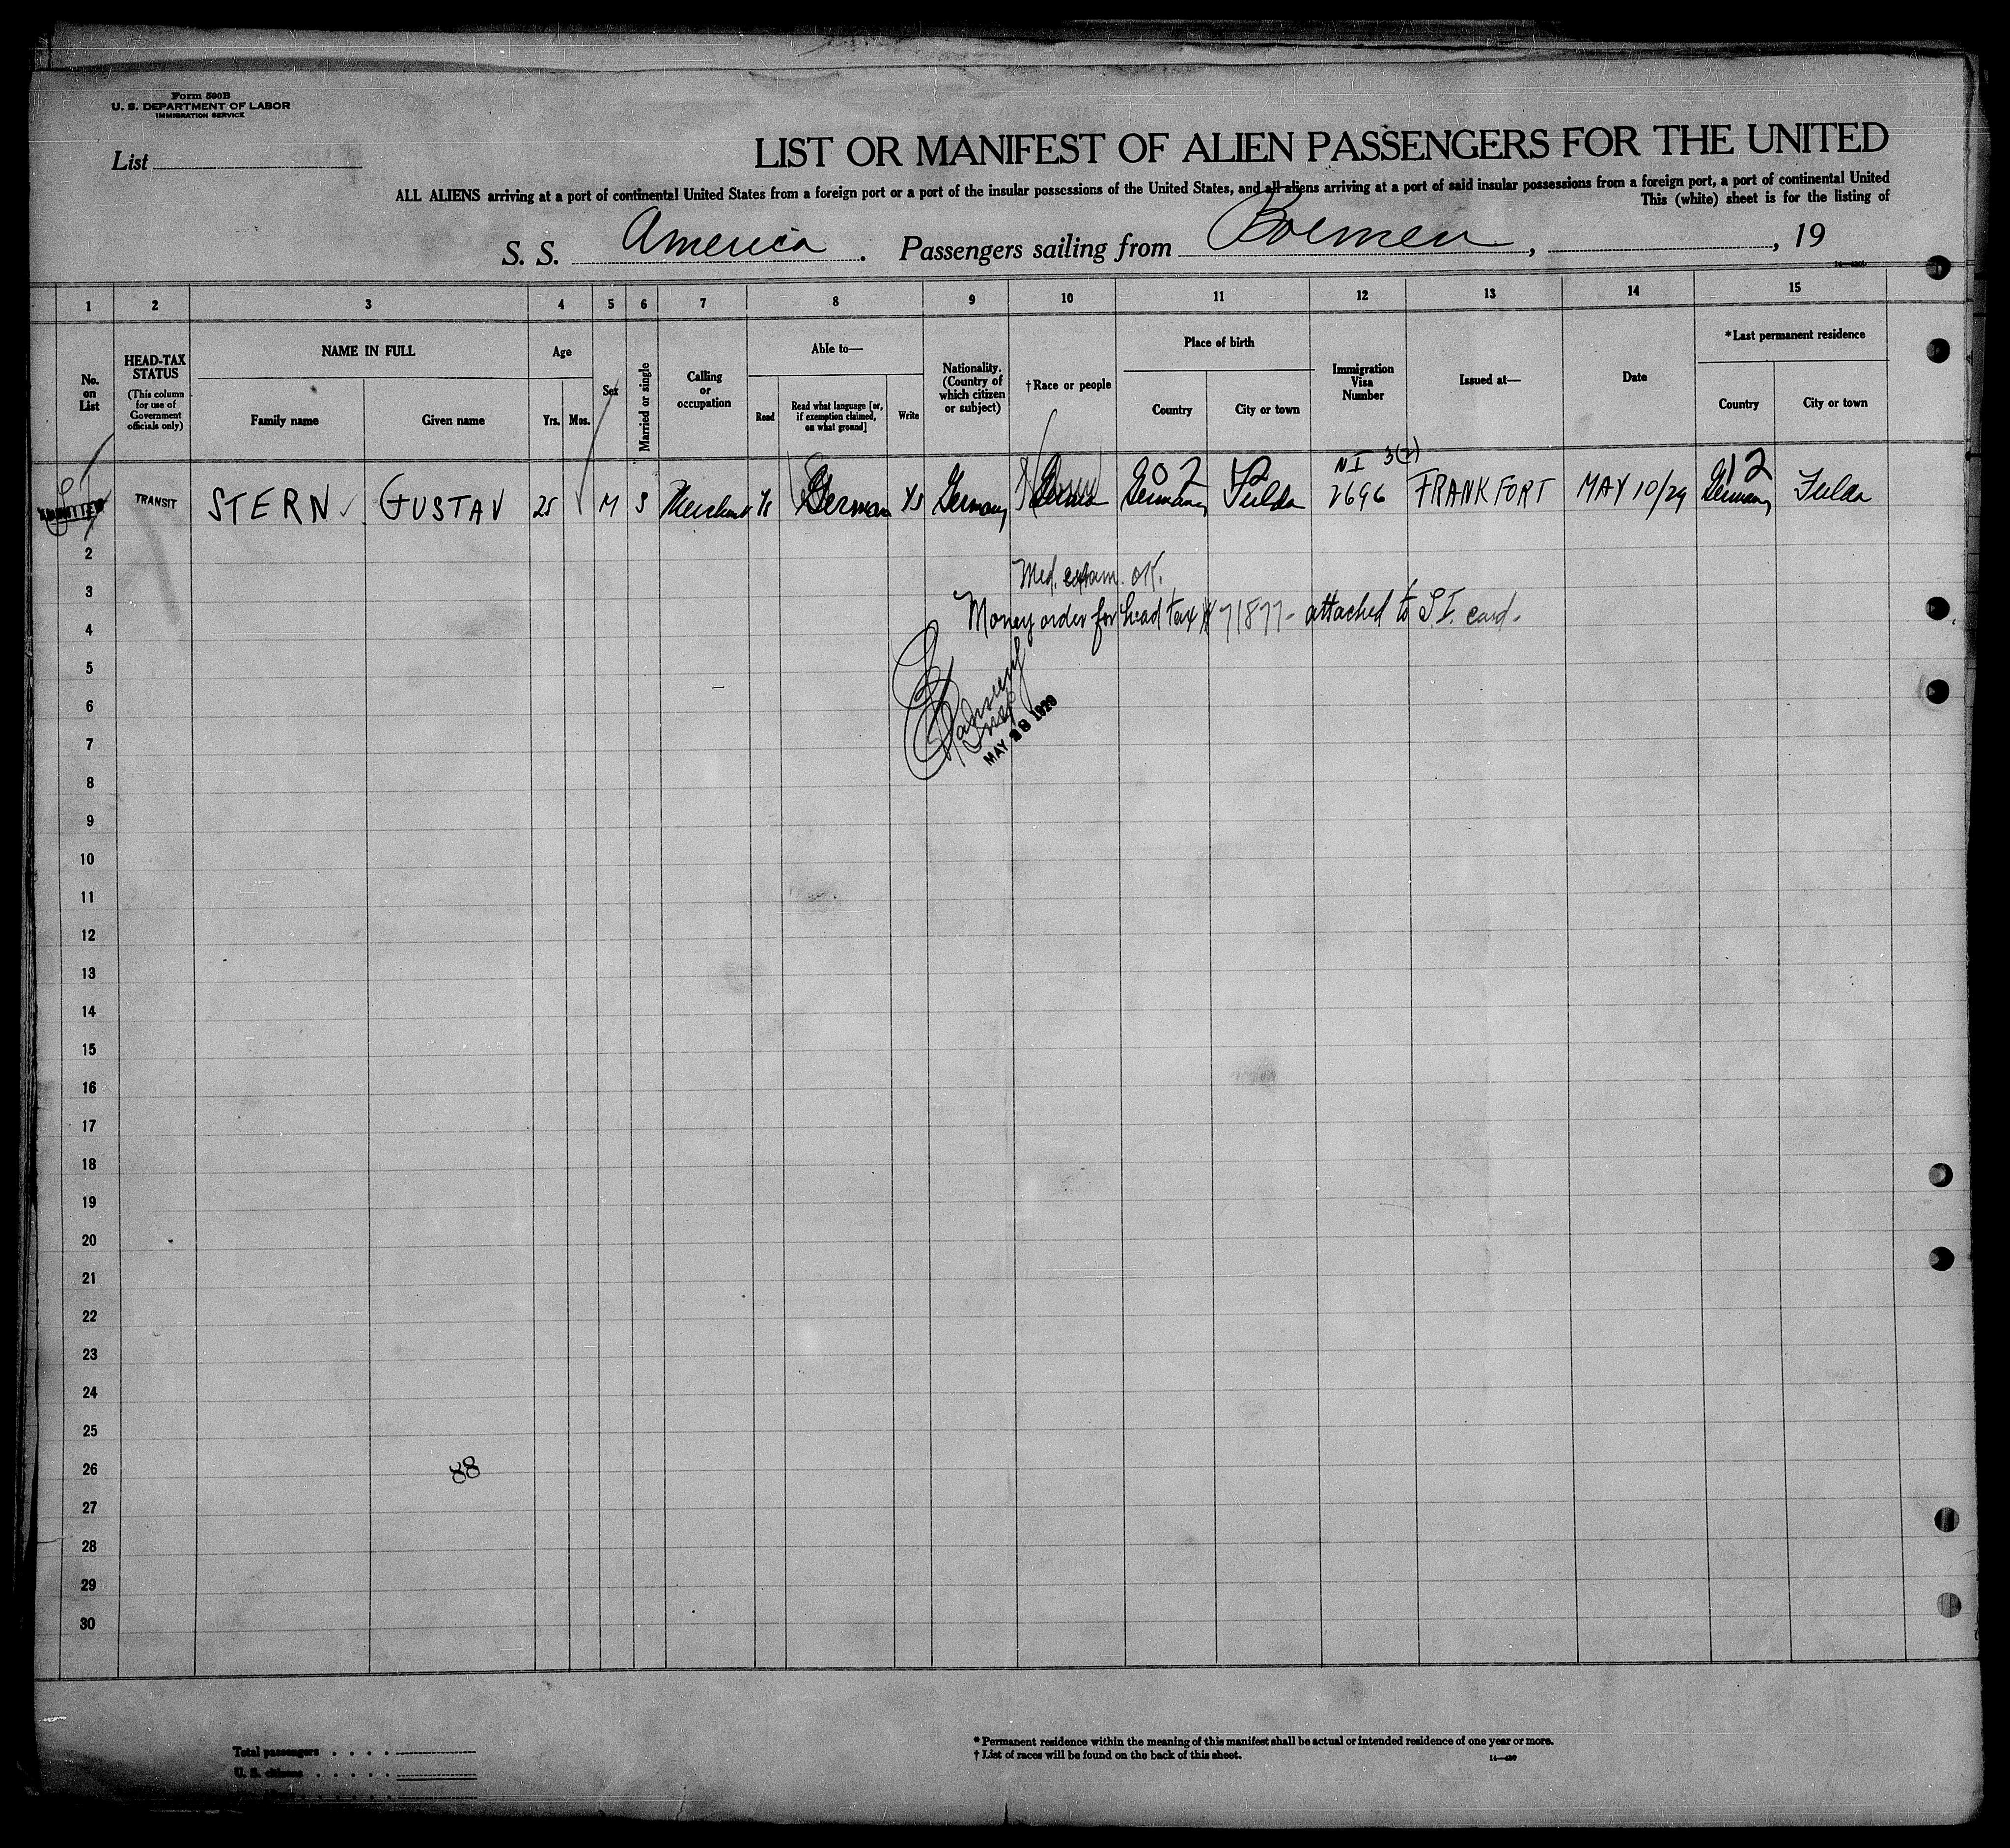 Form 500B
U. S. DEPARTMENT OF LABOR
IMMIGRATION SERVICE
List
LIST OR MANIFEST OF ALIEN PASSENGERS FOR THE UNITED
ALL ALIENS arriving at a port of continental United States from a foreign port or a port of the insular possessions of the United States, and all aliens arriving at a port of said insular possessions from a foreign port, a port of continental United
This (white) sheet is for the listing of
S. S. America. Passengers sailing from Bremen, , 19
1 2 3 4 5 6 7 8 9 10 11 12 13 14 15
No. on List
HEAD-TAX STATUS
(This column for use of Government officials only)
NAME IN FULL
Family name
Given name
Age
Yrs.
Mos.
Sex
Married or single
Calling or occupation
Able to—
Read
Read what language [or, if exemption claimed, on what ground]
Write
Nationality. (Country of which citizen or subject)
†Race or people
Place of birth
Country
City or town
Immigration Visa Number
Issued at—
Date
*Last permanent residence
Country
City or town
NI 3(2)
ADMITTED TRANSIT STERN GUSTAV 25 M S Merchant Ys German Ys Germany Germany Fulda 2696 FRANKFORT MAY 10/29 Germany Fulda
12
2
Med. exam. OK.
3
Money order for head tax # 71877 - attached to S.I. card.
4
5
6
MAY 28 1929
7
8
9
10
11
12
13
14
15
16
17
18
19
20
21
22
23
24
25
26
88
27
28
29
30
Total passengers
U. S. citizens
* Permanent residence within the meaning of this manifest shall be actual or intended residence of one year or more.
† List of races will be found on the back of this sheet.
14—430